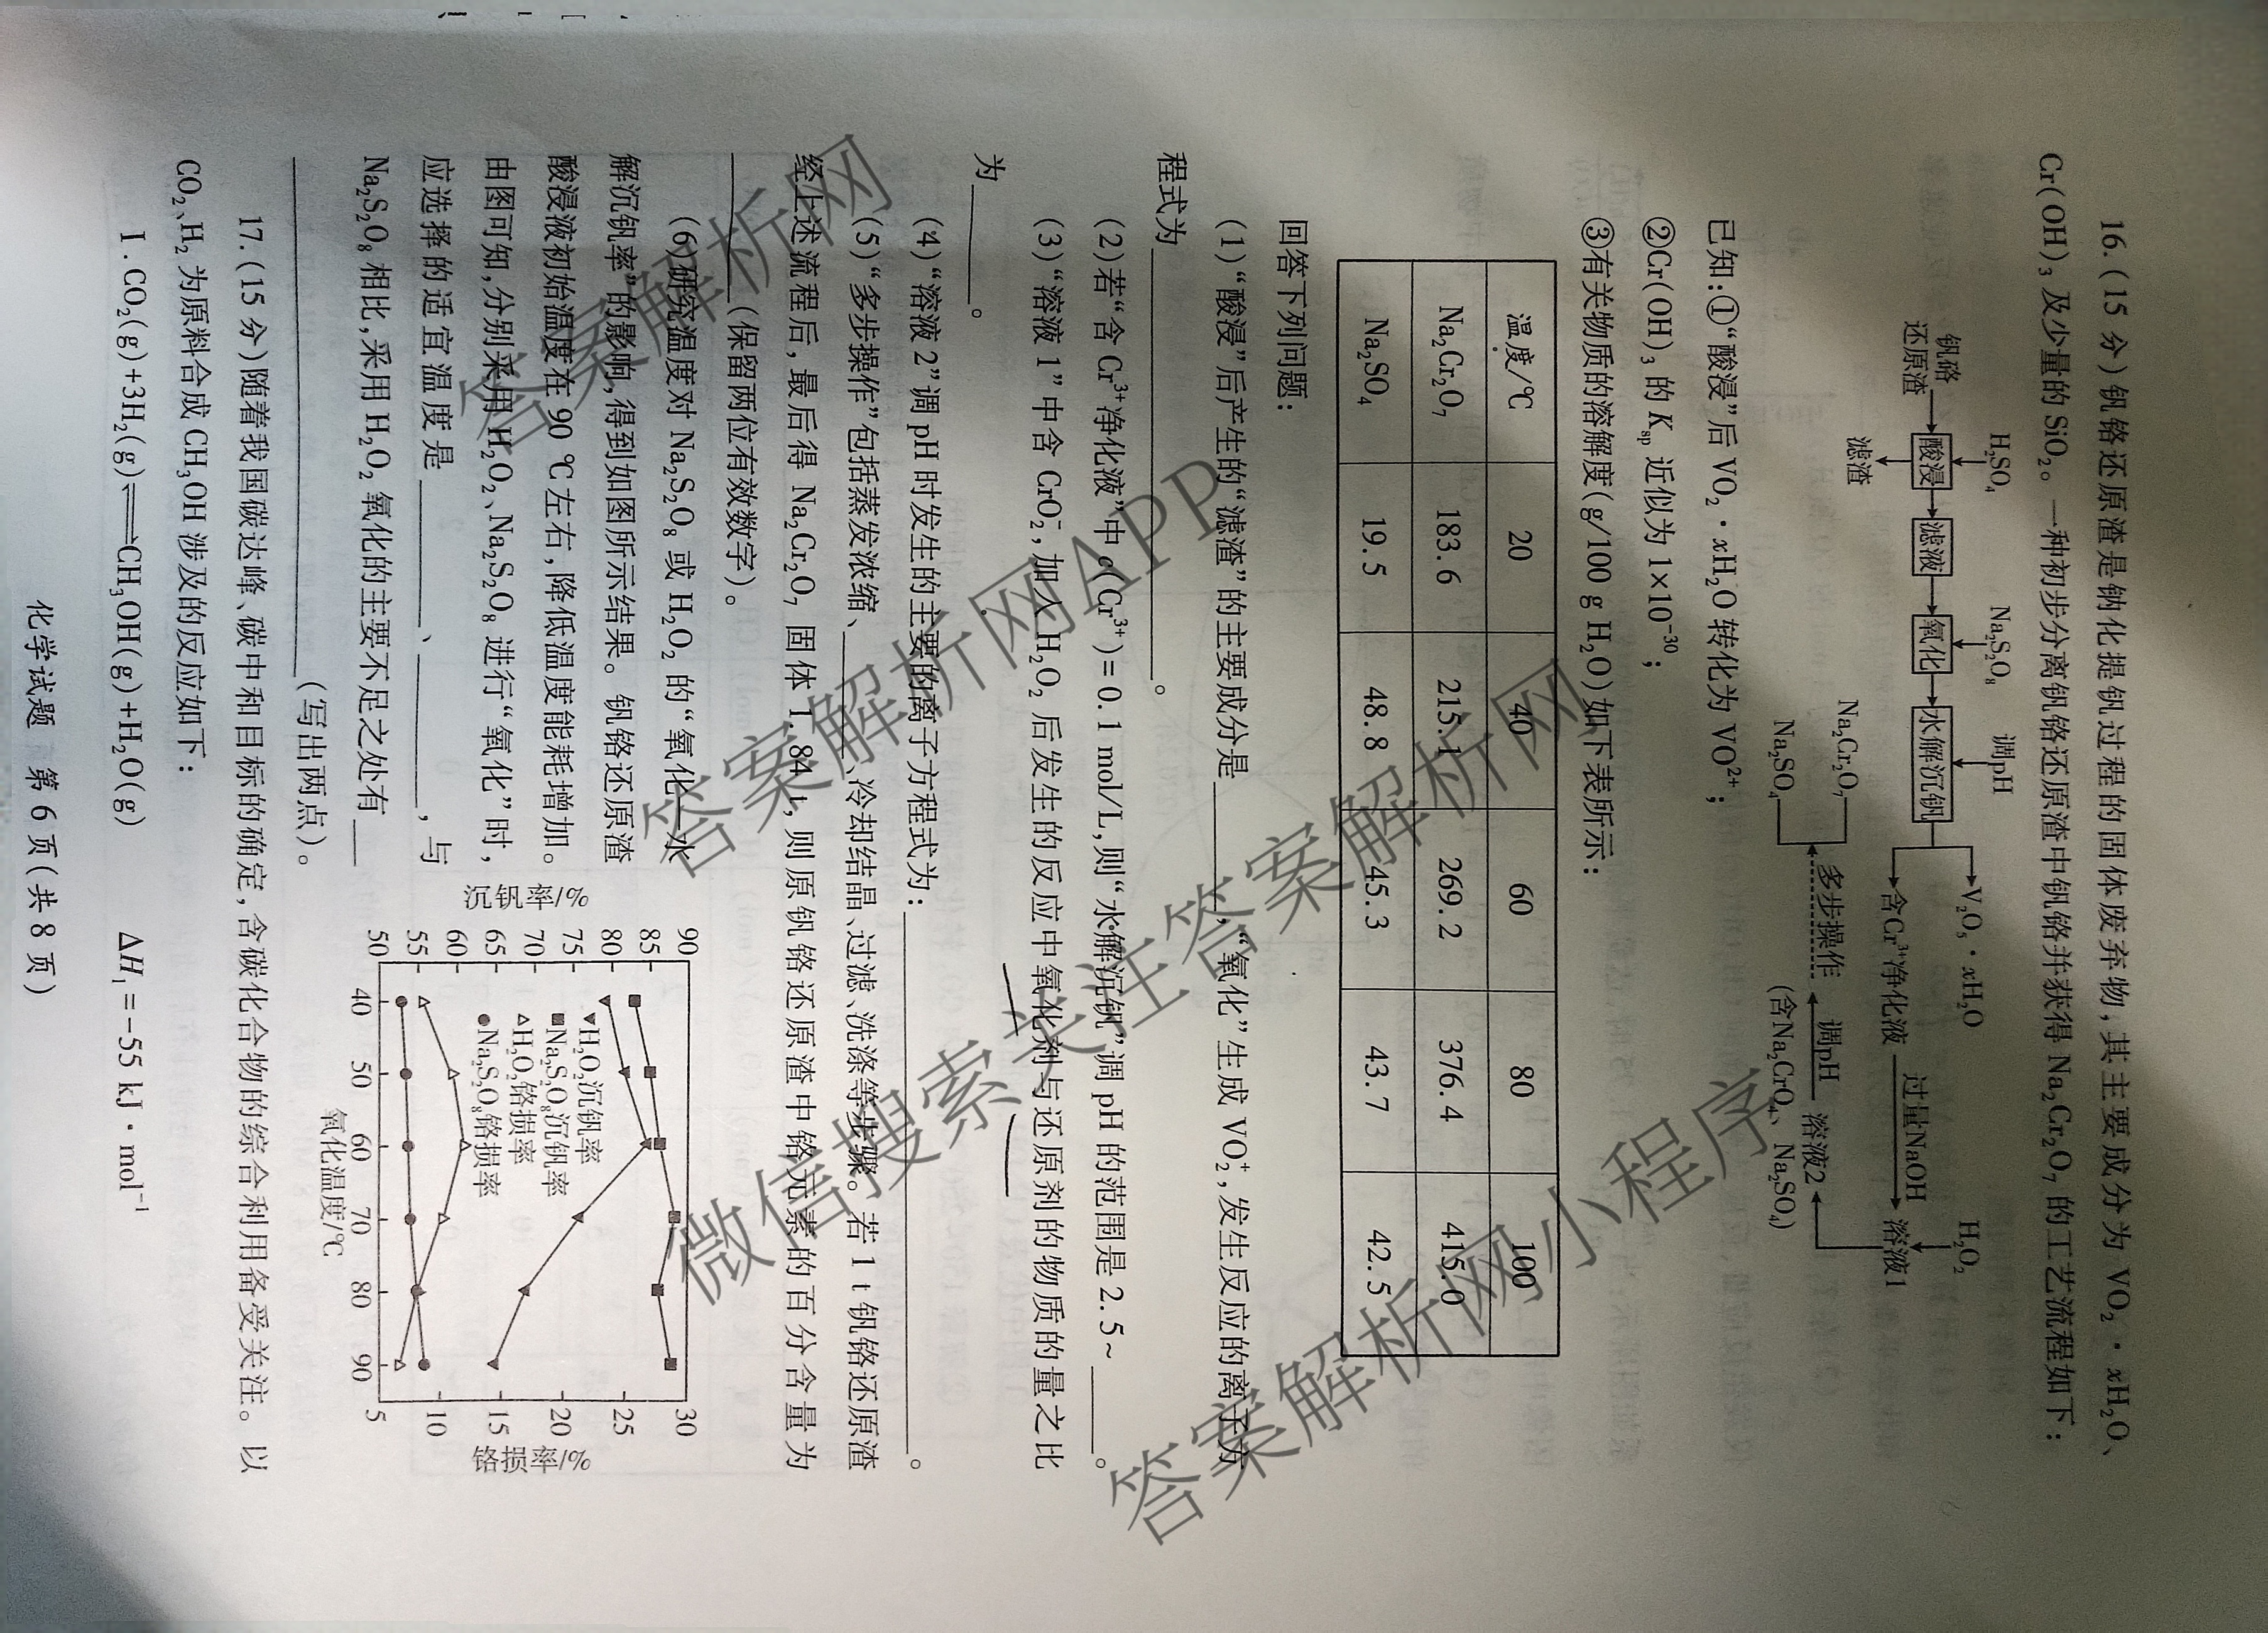 16.(15 分)钒铬还原渣是钠化提钒过程的固体废弃物,其主要成分为 VO₂·xH₂O、
Cr(OH)₃ 及少量的 SiO₂。一种初步分离钒铬还原渣中钒铬并获得 Na₂Cr₂O₇ 的工艺流程如下:
H₂SO₄
Na₂S₂O₈
调pH
V₂O₅·xH₂O
H₂O₂
钒铬
还原渣
酸浸
滤液
氧化
水解沉钒
含Cr³⁺净化液
过量NaOH
溶液1
滤渣
Na₂Cr₂O₇
Na₂SO₄
多步操作
调pH
溶液2
(含Na₂CrO₄、Na₂SO₄)
已知:①“酸浸”后 VO₂·xH₂O 转化为 VO²⁺;
②Cr(OH)₃ 的 Kₛₚ 近似为 1×10⁻³⁰;
③有关物质的溶解度(g/100 g H₂O)如下表所示:
温度/℃ 20 40 60 80 100
Na₂Cr₂O₇ 183.6 215.1 269.2 376.4 415.0
Na₂SO₄ 19.5 48.8 45.3 43.7 42.5
回答下列问题:
(1)“酸浸”后产生的“滤渣”的主要成分是______,“氧化”生成 VO₂⁺,发生反应的离子方
程式为______。
(2)若“含 Cr³⁺净化液”中 c(Cr³⁺)=0.1 mol/L,则“水解沉钒”调 pH 的范围是 2.5~______。
(3)“溶液 1”中含 CrO₂⁻,加入 H₂O₂ 后发生的反应中氧化剂与还原剂的物质的量之比
为______。
(4)“溶液 2”调 pH 时发生的主要的离子方程式为:______。
(5)“多步操作”包括蒸发浓缩、______、冷却结晶、过滤、洗涤等步骤。若 1 t 钒铬还原渣
经上述流程后,最后得 Na₂Cr₂O₇ 固体 1.84 t,则原钒铬还原渣中铬元素的百分含量为
______(保留两位有效数字)。
(6)研究温度对 Na₂S₂O₈ 或 H₂O₂ 的“氧化—水
解沉钒率”的影响,得到如图所示结果。钒铬还原渣
酸浸液初始温度在 90 ℃左右,降低温度能耗增加。
由图可知,分别采用 H₂O₂、Na₂S₂O₈ 进行“氧化”时,
应选择的适宜温度是______、______,与
Na₂S₂O₈ 相比,采用 H₂O₂ 氧化的主要不足之处有______
______(写出两点)。
沉钒率/%
90
85
80
75
70
65
60
55
50
▼H₂O₂沉钒率
■Na₂S₂O₈沉钒率
△H₂O₂铬损率
●Na₂S₂O₈铬损率
40 50 60 70 80 90
氧化温度/℃
30
25
20
15
10
5
铬损率/%
17.(15 分)随着我国碳达峰、碳中和目标的确定,含碳化合物的综合利用备受关注。以
CO₂、H₂ 为原料合成 CH₃OH 涉及的反应如下:
Ⅰ.CO₂(g)+3H₂(g)⇌CH₃OH(g)+H₂O(g) ΔH₁=-55 kJ·mol⁻¹
化学试题 第 6 页(共 8 页)
答案解析网
答案解析网APP
微信搜索关注答案解析网
答案解析网小程序